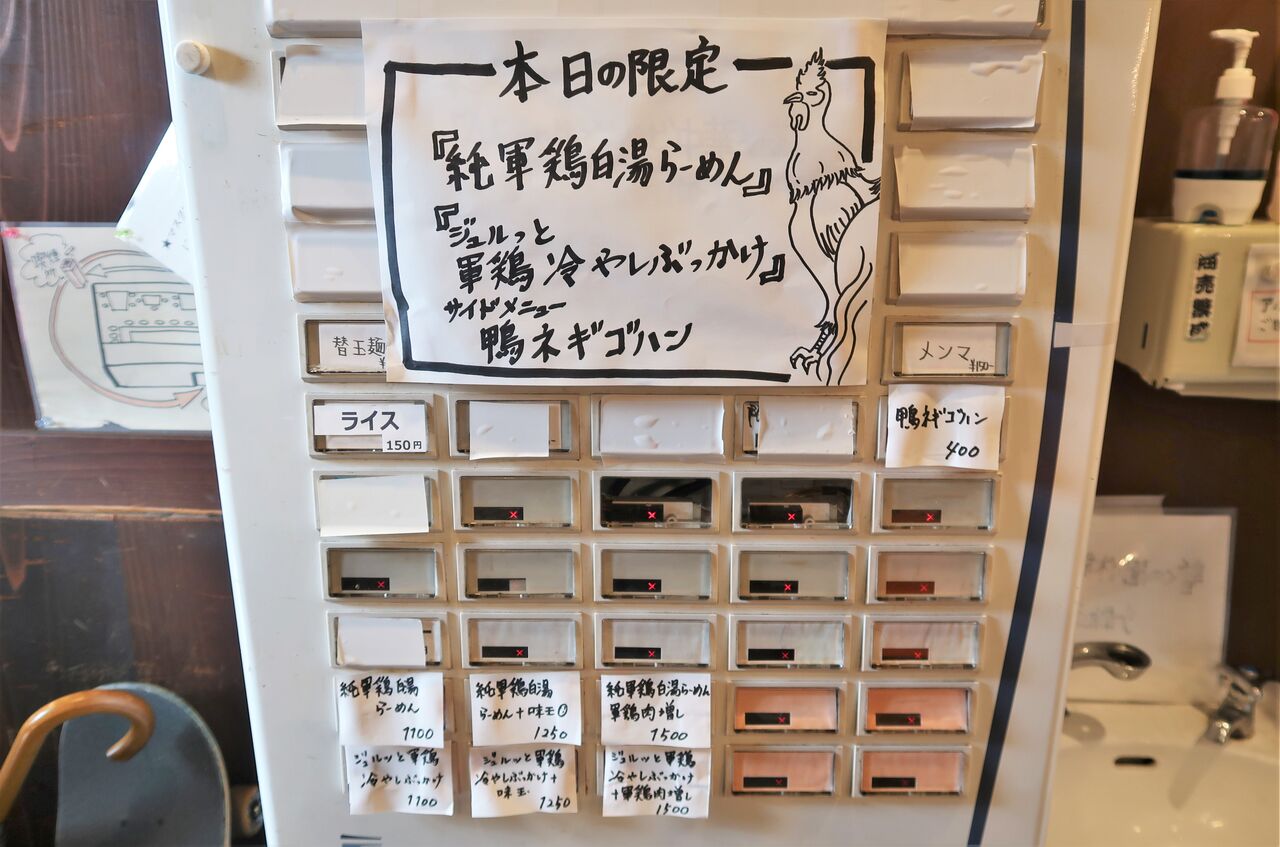 本日の限定
『純軍鶏白湯らーめん』
『ジュルっと
軍鶏 冷やしぶっかけ』
サイドメニュー
鴨ネギゴハン
替玉麺
メンマ
¥150-
ライス
150円
鴨ネギゴハン
400
純軍鶏白湯
らーめん
1100
純軍鶏白湯
らーめん+味玉
1250
純軍鶏白湯らーめん
軍鶏肉増し
1500
ジュルッと軍鶏
冷やしぶっかけ
1100
ジュルッと軍鶏
冷やしぶっかけ+
味玉
1250
ジュルッと軍鶏
冷やしぶっかけ
+軍鶏肉増し
1500
商売繁盛